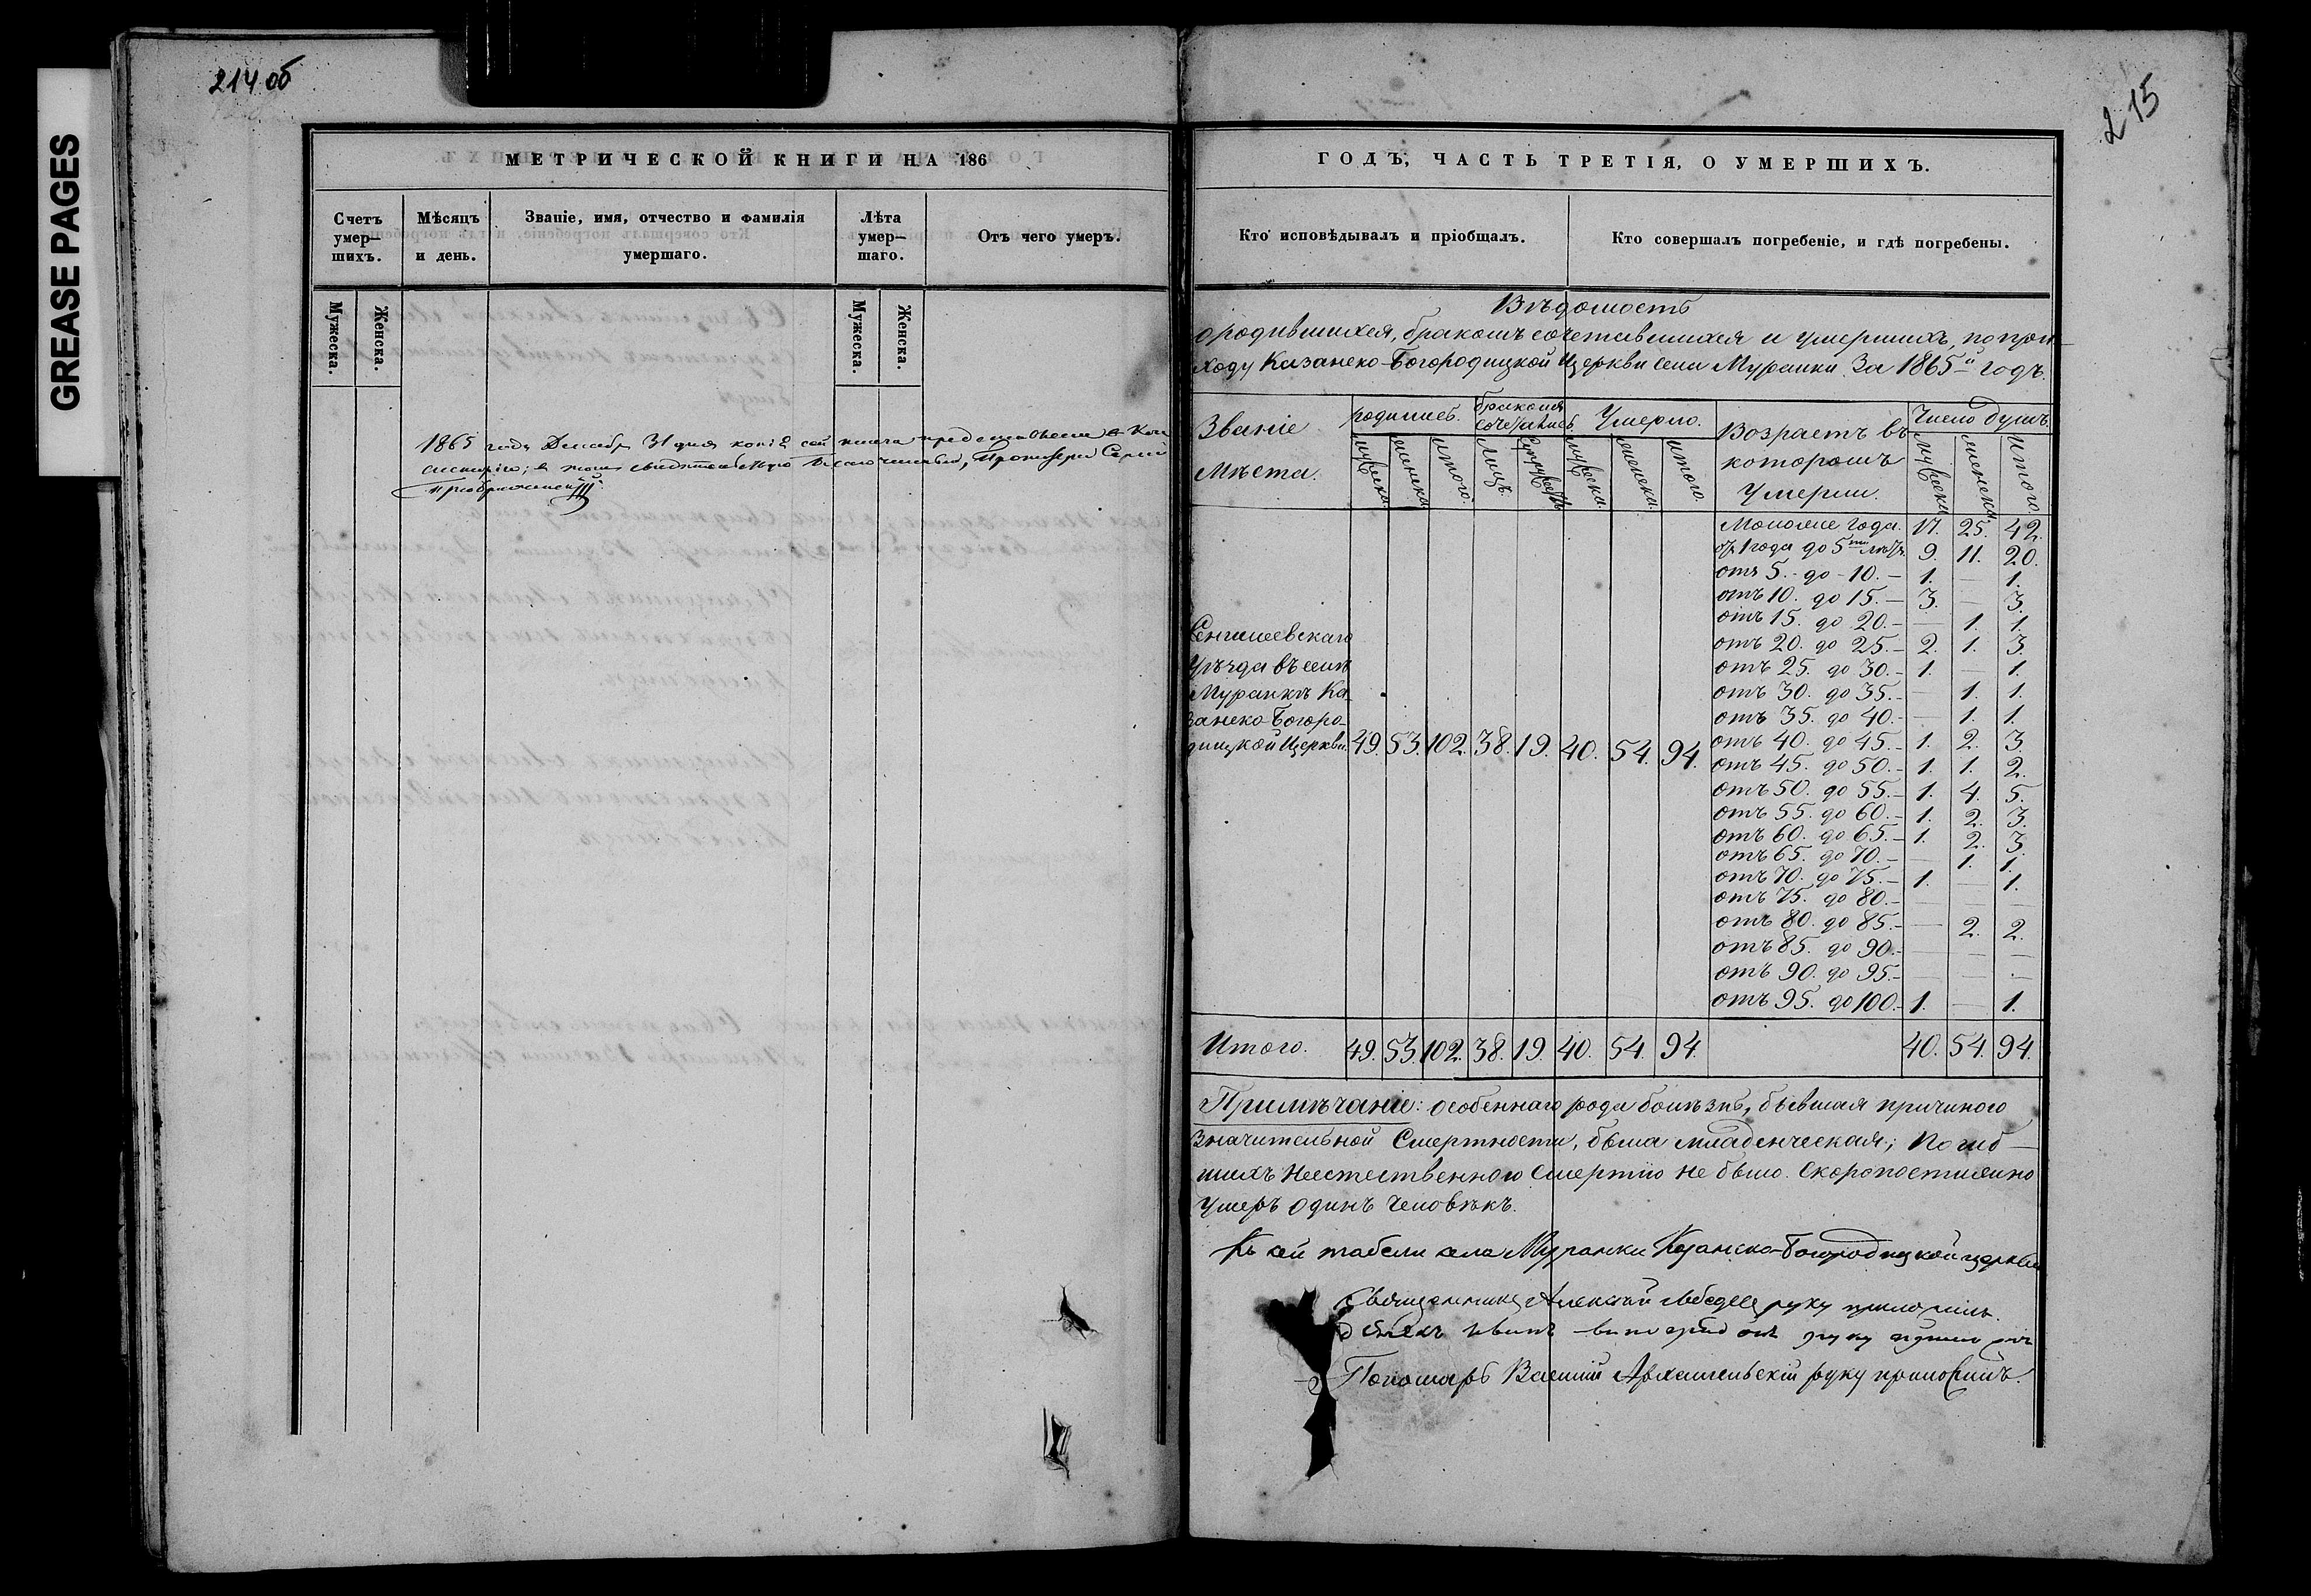 GREASE PAGES
214 об
МЕТРИЧЕСКОЙ КНИГИ НА 186
Счетъ умер— шихъ.
Мѣсяцъ и день.
Званіе, имя, отчество и фамилія умершаго.
Лѣта умер— шаго.
Отъ чего умеръ.
Мужеска.
Женска.
Мужеска.
Женска.
1865 года Декабр 31 дня копія сей книга представлена в Кон
систорію; в томъ свидетельствую Протоіерей Сергій
Преображенскій
215
ГОДЪ, ЧАСТЬ ТРЕТІЯ, О УМЕРШИХЪ.
Кто исповѣдывалъ и пріобщалъ.
Кто совершалъ погребеніе, и гдѣ погребены.
Вѣдомость
о родившихся, бракомъ сочетавшихся и умершихъ, по при
ходу Казанско-Богородицкой Церкви села Муранки За 1865й годъ.
Званіе Мѣста.
родилось.
бракомъ сочеталось.
Умерло.
Возрастъ въ которомъ Умерли.
Число душъ.
мужеска
женска
Итого.
Лицъ.
Супружествъ
мужеска.
женска.
Итого.
мужеска
женска.
Итого.
Моложе года. 17. 25. 42.
отъ 1 года до 5ти лѣтъ. 9. 11. 20.
отъ 5.- до -10.— 1. — 1.
отъ 10. до 15.— 3. — 3.
отъ 15. до 20.- — 1. 1.
отъ 20. до 25.- 2. 1. 3.
отъ 25. до 30.- 1. — 1.
отъ 30. до 35.- — 1. 1.
отъ 35. до 40.- — 1. 1.
отъ 40. до 45.- 1. 2. 3.
отъ 45. до 50.- 1. 1. 2.
отъ 50. до 55.- 1. 4. 5.
отъ 55. до 60.- 1. 2. 3.
отъ 60. до 65.- 1. 2. 3.
отъ 65. до 70.- — 1. 1.
отъ 70. до 75.- 1. — 1.
отъ 75. до 80.- — — —
отъ 80. до 85.- — 2. 2.
отъ 85. до 90.- — — —
отъ 90. до 95.- — — —
отъ 95. до 100.- 1. — 1.
Сенгилеевскаго
Уѣзда въ селѣ
Муранкѣ Ка
занско-Богоро-
дицкой Церкви. 49. 53. 102. 38. 19. 40. 54. 94.
Итого. 49. 53. 102. 38. 19. 40. 54. 94. 40. 54. 94.
Примѣчаніе: особеннаго рода болѣзнь, бывшая причиною
Значительной Смертности, была младенческая; Погиб—
шихъ Неестественною Смертію не было. Скоропостижно
Умеръ одинъ Человѣкъ.
Къ сей табели села Муранки Казанско-Богородицкой церкви
Священникъ Алексей Лебедевъ руку приложилъ.
руку приложилъ
Пономарь Василій Архангельскій руку приложилъ.